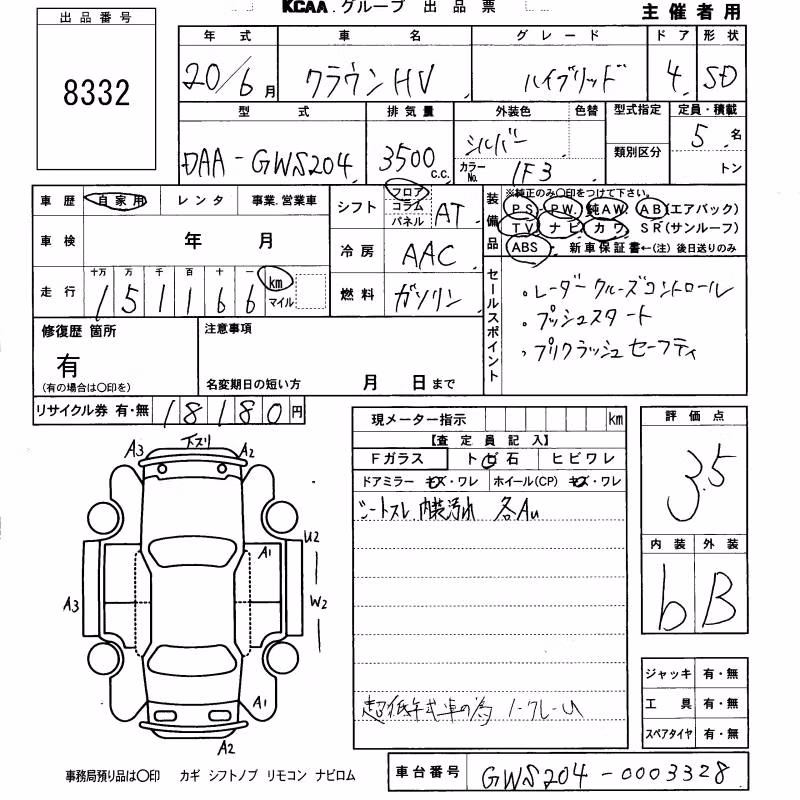 KCAA.グループ 出品票
主催者用
出品番号
8332
年式 車名 グレード ドア 形状
20/6月 クラウンHV ハイブリッド 4 SD
型式 排気量 外装色 色替 型式指定 定員・積載
DAA-GWS204 3500c.c. シルバー 類別区分 5名
カラーNo. 1F3 トン
車歴 自家用 レンタ 事業.営業車
車検 年 月
走行 十万 万 千 百 十 一
151166 km マイル
シフト フロア コラム パネル AT
冷房 AAC
燃料 ガソリン
装備品
※純正のみ〇印をつけて下さい。
PS PW. 純AW. AB(エアバック)
TV ナビ カワ SR(サンルーフ)
ABS 新車保証書←(注)後日送りのみ
セールスポイント
・レーダークルーズコントロール
・プッシュスタート
・プリクラッシュセーフティ
修復歴 箇所
有
(有の場合は〇印を)
注意事項
名変期日の短い方 月 日まで
リサイクル券 有・無 18180円
現メーター指示 km
【査定員記入】
Fガラス トビ石 ヒビワレ
ドアミラー キズ・ワレ ホイール(CP) キズ・ワレ
シートスレ 内装汚れ 各AU
超低年式車の為 ノークレーム
評価点
3.5
内装 外装
b B
ジャッキ 有・無
工具 有・無
スペアタイヤ 有・無
A3 下スリ A2
A1 U2
A3 W2
A1
A2
事務局預り品は〇印 カギ シフトノブ リモコン ナビロム
車台番号 GWS204-0003328